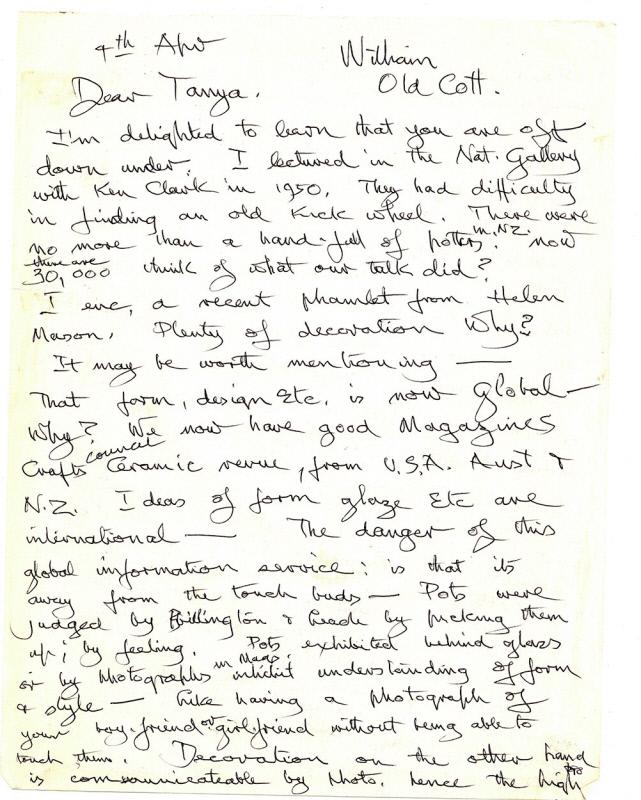 4th Apr
William
Old Cott.
Dear Tanya.
I'm delighted to learn that you are off
down under. I lectured in the Nat. Gallery
with Ken Clark in 1950. They had difficulty
in finding an old Kick wheel. There were
no more than a hand-full of potters in N.Z. now
there are
30,000 think of what our talk did?
I enc, a recent phamlet from Helen
Mason. Plenty of decoration Why?
It may be worth mentioning —
That form, design Etc. is now global —
Why? We now have good Magazines
Crafts council Ceramic revue, from U.S.A. Aust &
N.Z. Ideas of form glaze Etc are
international — The danger of this
global information service: is that its
away from the touch buds — Pots were
judged by Billington & Leach by picking them
up; by feeling. Pots exhibited behind glass
or by photographs in Mags. inhibit understanding of form
& style — Like having a photograph of
your boy-friend or girlfriend without being able to
touch them. Decoration on the other hand
is communicateable by photo. hence the high
PTO